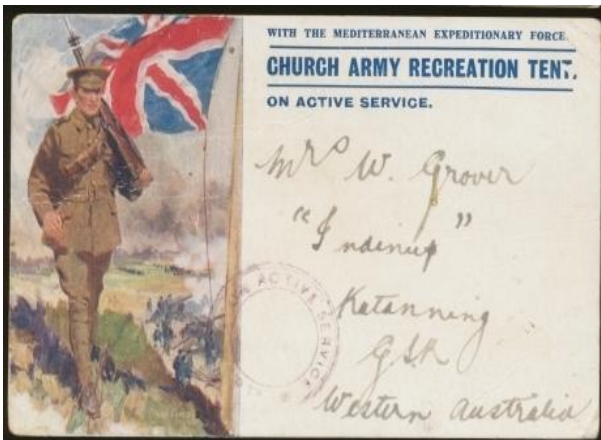 WITH THE MEDITERRANEAN EXPEDITIONARY FORCE.
CHURCH ARMY RECREATION TENT.
ON ACTIVE SERVICE.
Mrs W. Grover
"Indinup"
Katanning
G.S.R
Western Australia
ON ACTIVE SERVICE